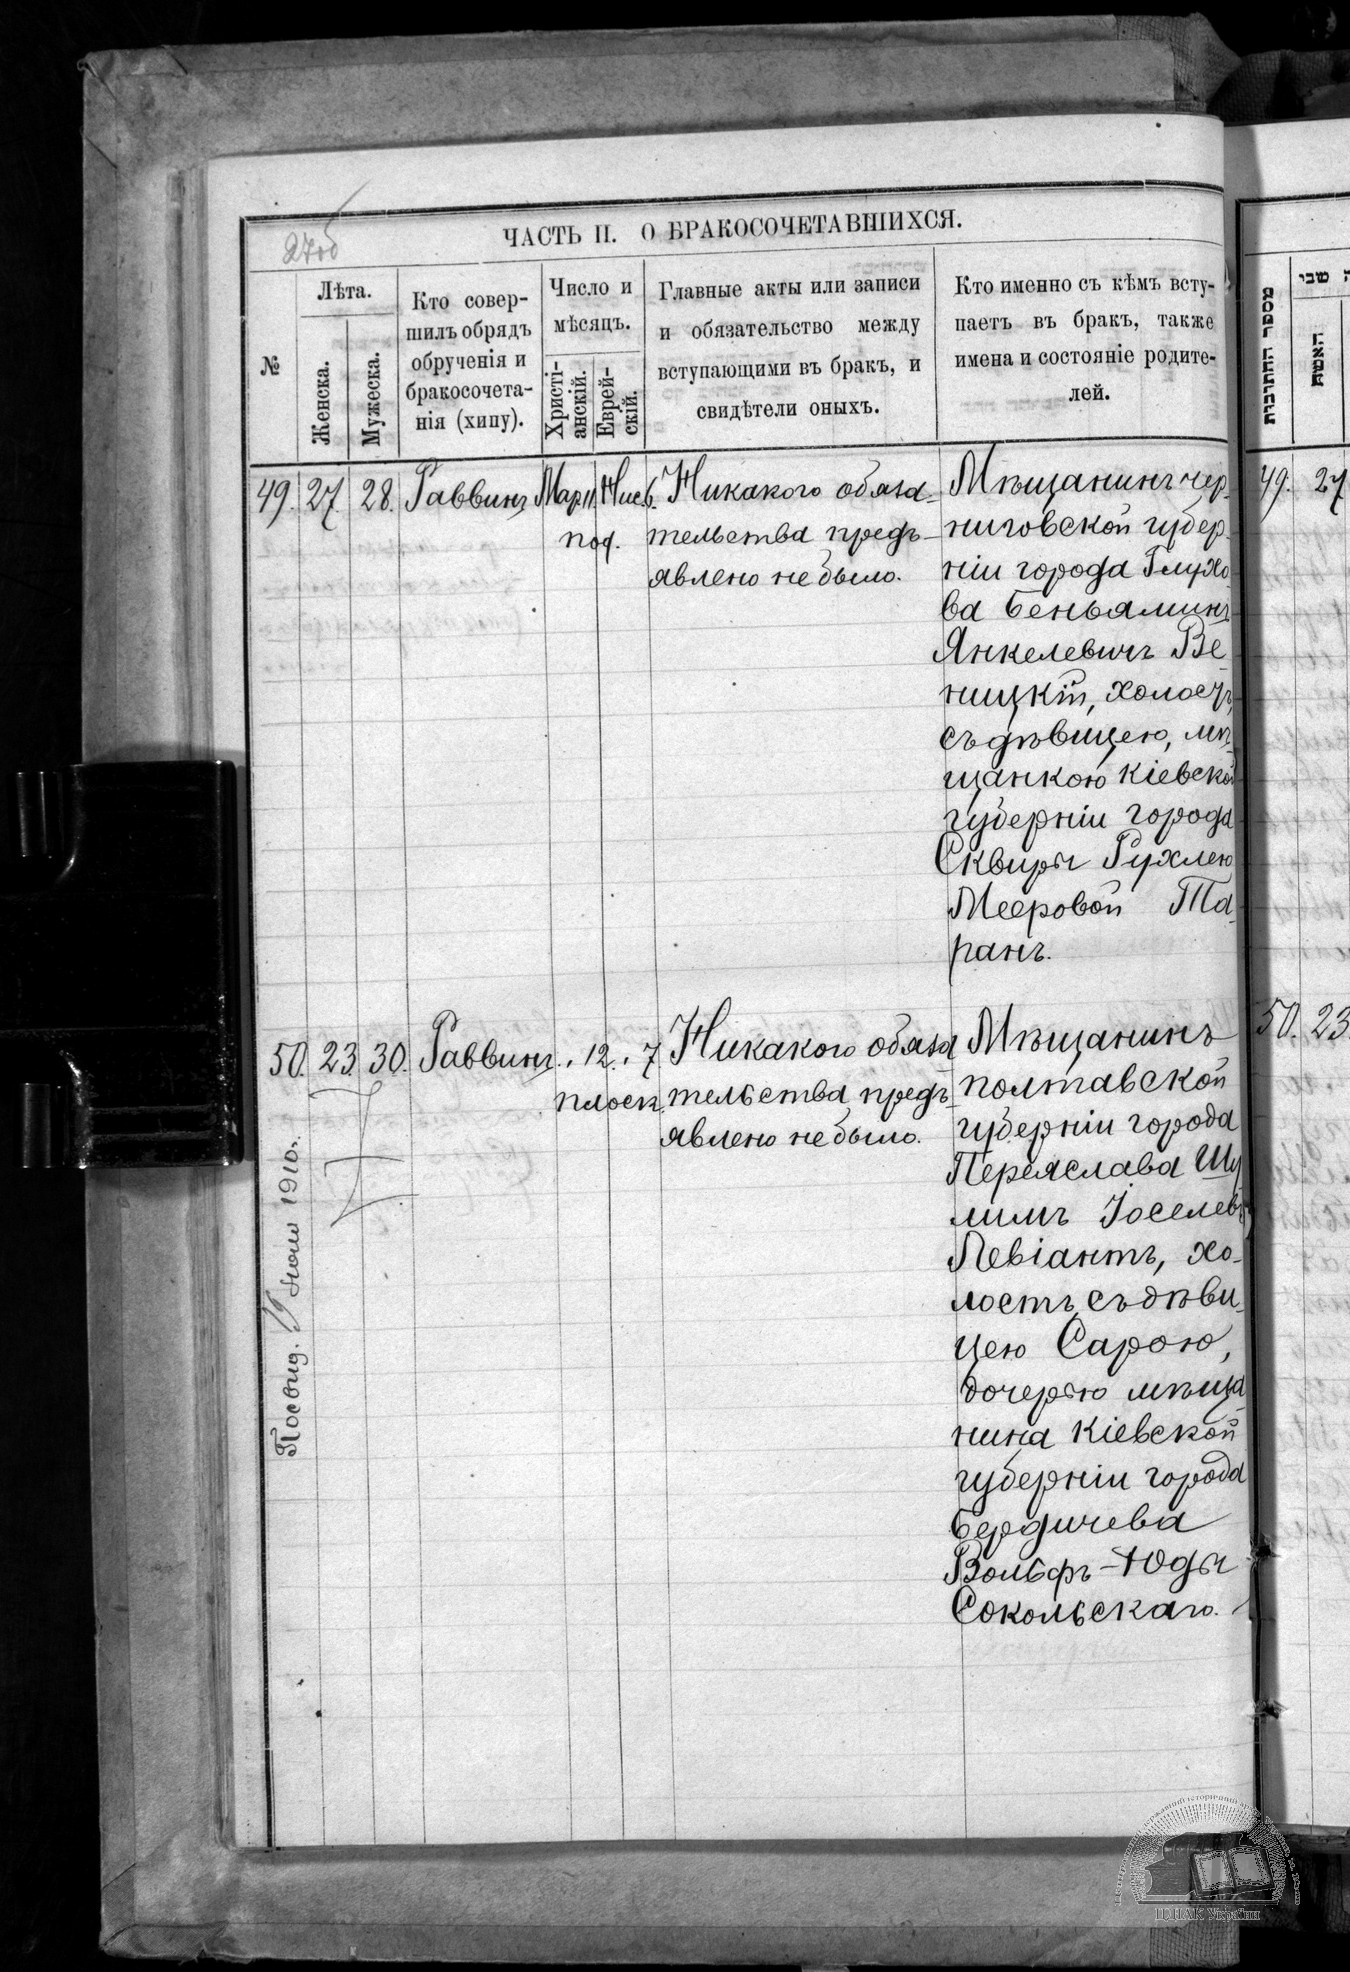 27об
ЧАСТЬ II. О БРАКОСОЧЕТАВШИХСЯ.
№
Лѣта.
Женска.
Мужеска.
Кто совер-
шилъ обрядъ
обрученія и
бракосочета-
нія (хипу).
Число и
мѣсяцъ.
Христі-
анскій.
Еврей-
скій.
Главные акты или записи
и обязательство между
вступающими въ бракъ, и
свидѣтели оныхъ.
Кто именно съ кѣмъ всту-
паетъ въ бракъ, также
имена и состояніе родите-
лей.
49. 27. 28. Раввинъ Мар. 11. Нис. 6.
под.
Никакого обяза-
тельства предъ-
явлено не было.
Мѣщанинъ чер-
ниговской губер-
ніи города Глухо-
ва Беньяминъ
Янкелевичъ Ве-
ницкій, холостъ,
съ дѣвицею, мѣ-
щанкою Кіевской
губерніи города
Сквиры Рухлею
Мееровой Та-
ранъ.
50. 23. 30. Раввинъ „ 12. „ 7.
плоск.
Никакого обяза-
тельства предъ-
явлено не было.
Мѣщанинъ
полтавской
губерніи города
Переяслава Шу-
лимъ Іоселевъ
Левіантъ, хо-
лостъ, съ дѣви-
цею Сарою,
дочерью мѣща-
нина Кіевской
губерніи города
Бердичева
Вольфъ-Юды
Сокольскаго.
1910г.
מספר החתונות
האשת
49. 27
50. 23
ЦДІАК України